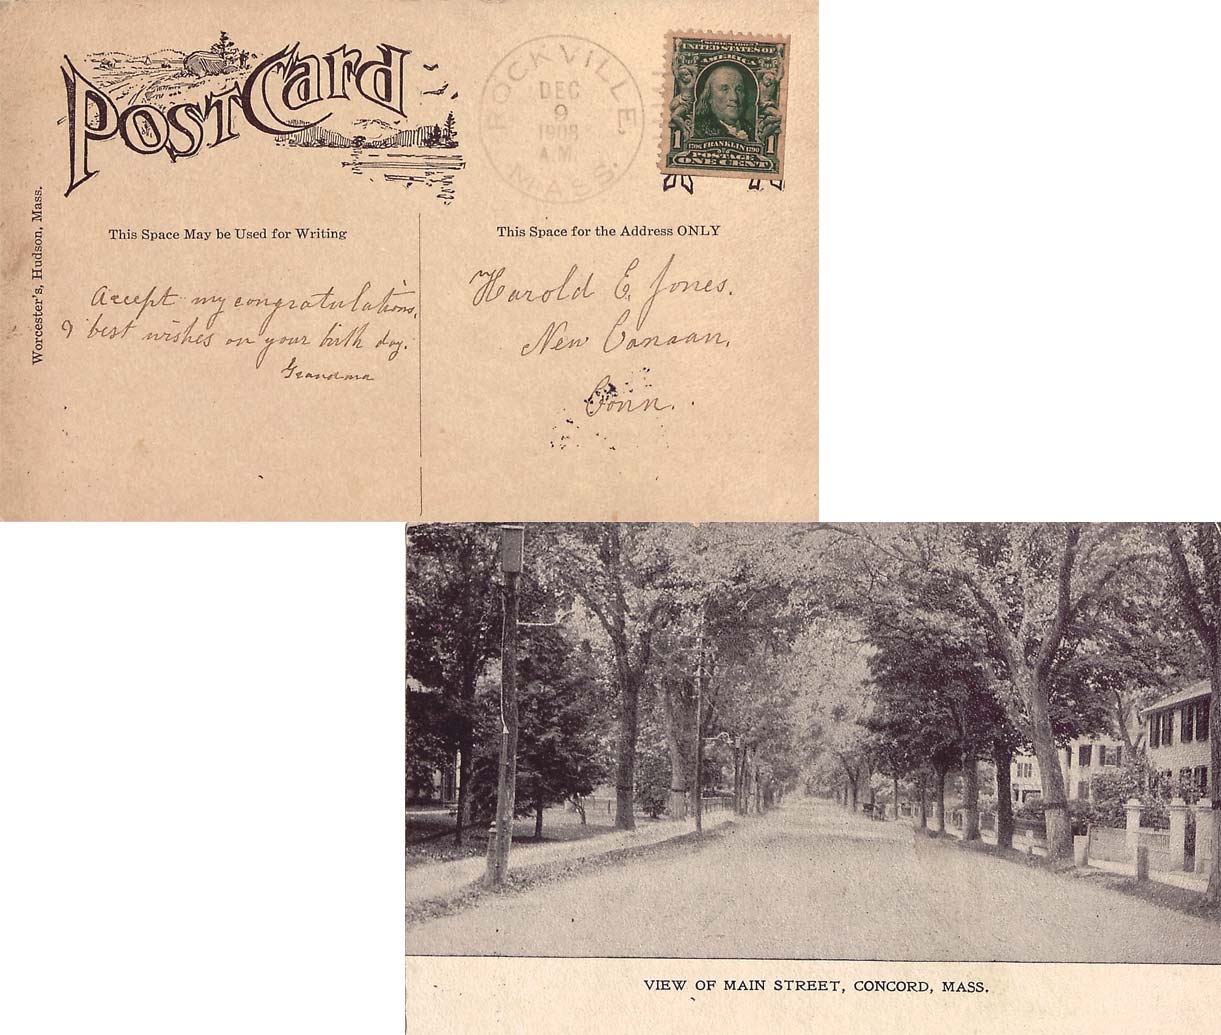 PostCard
ROCKVILLE,
DEC
9
1908
A.M.
MASS.
SERIES 1902
UNITED STATES OF
AMERICA
1 1706 FRANKLIN 1790 1
POSTAGE
ONE CENT
Worcester's, Hudson, Mass.
This Space May be Used for Writing
This Space for the Address ONLY
Accept my congratulations,
& best wishes on your birth day.
Grandma
Harold E. Jones.
New Canaan,
Conn.
VIEW OF MAIN STREET, CONCORD, MASS.